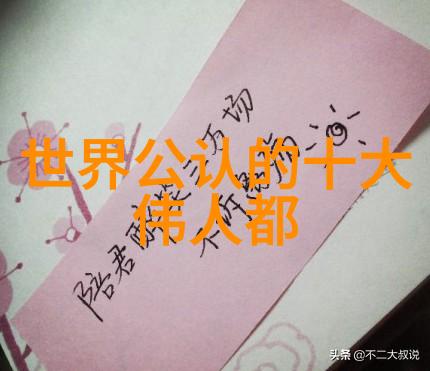 世界公认的十大
伟人都
陪君醉笑三万场
不诉离殇
头条 @不二大叔说